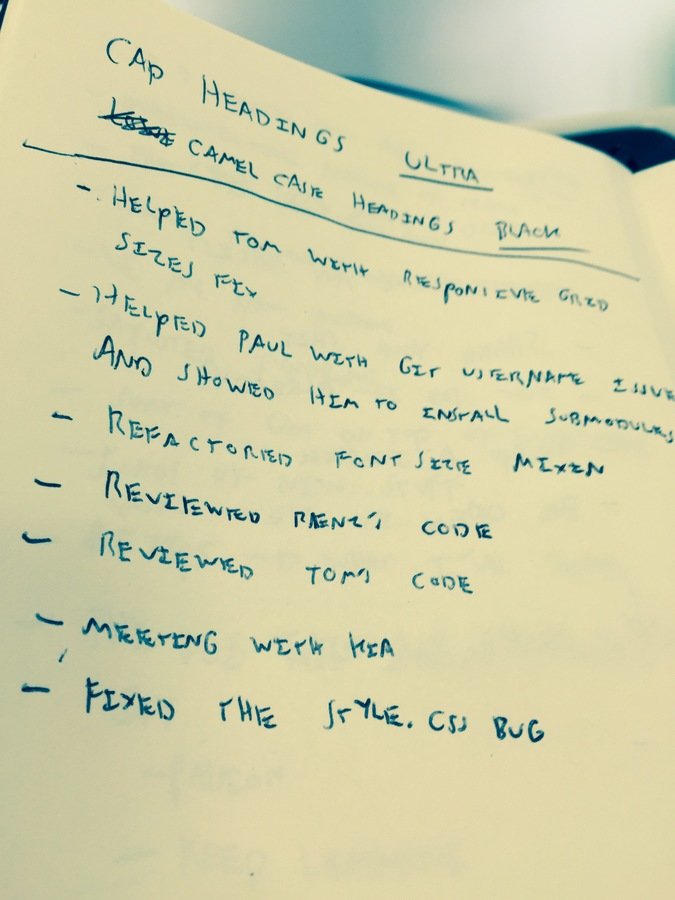 CAP HEADINGS ULTRA
CAMEL CASE HEADINGS BLACK
- HELPED TOM WITH RESPONSIVE GRID
SIZES FIX
- HELPED PAUL WITH GIT USERNAME ISSUE
AND SHOWED HIM TO INSTALL SUBMODULES
- REFACTORED FONT SIZE MIXIN
- REVIEWED CODE
- REVIEWED TOM'S CODE
- MEETING WITH KIA
- FIXED THE STYLE.CSS BUG